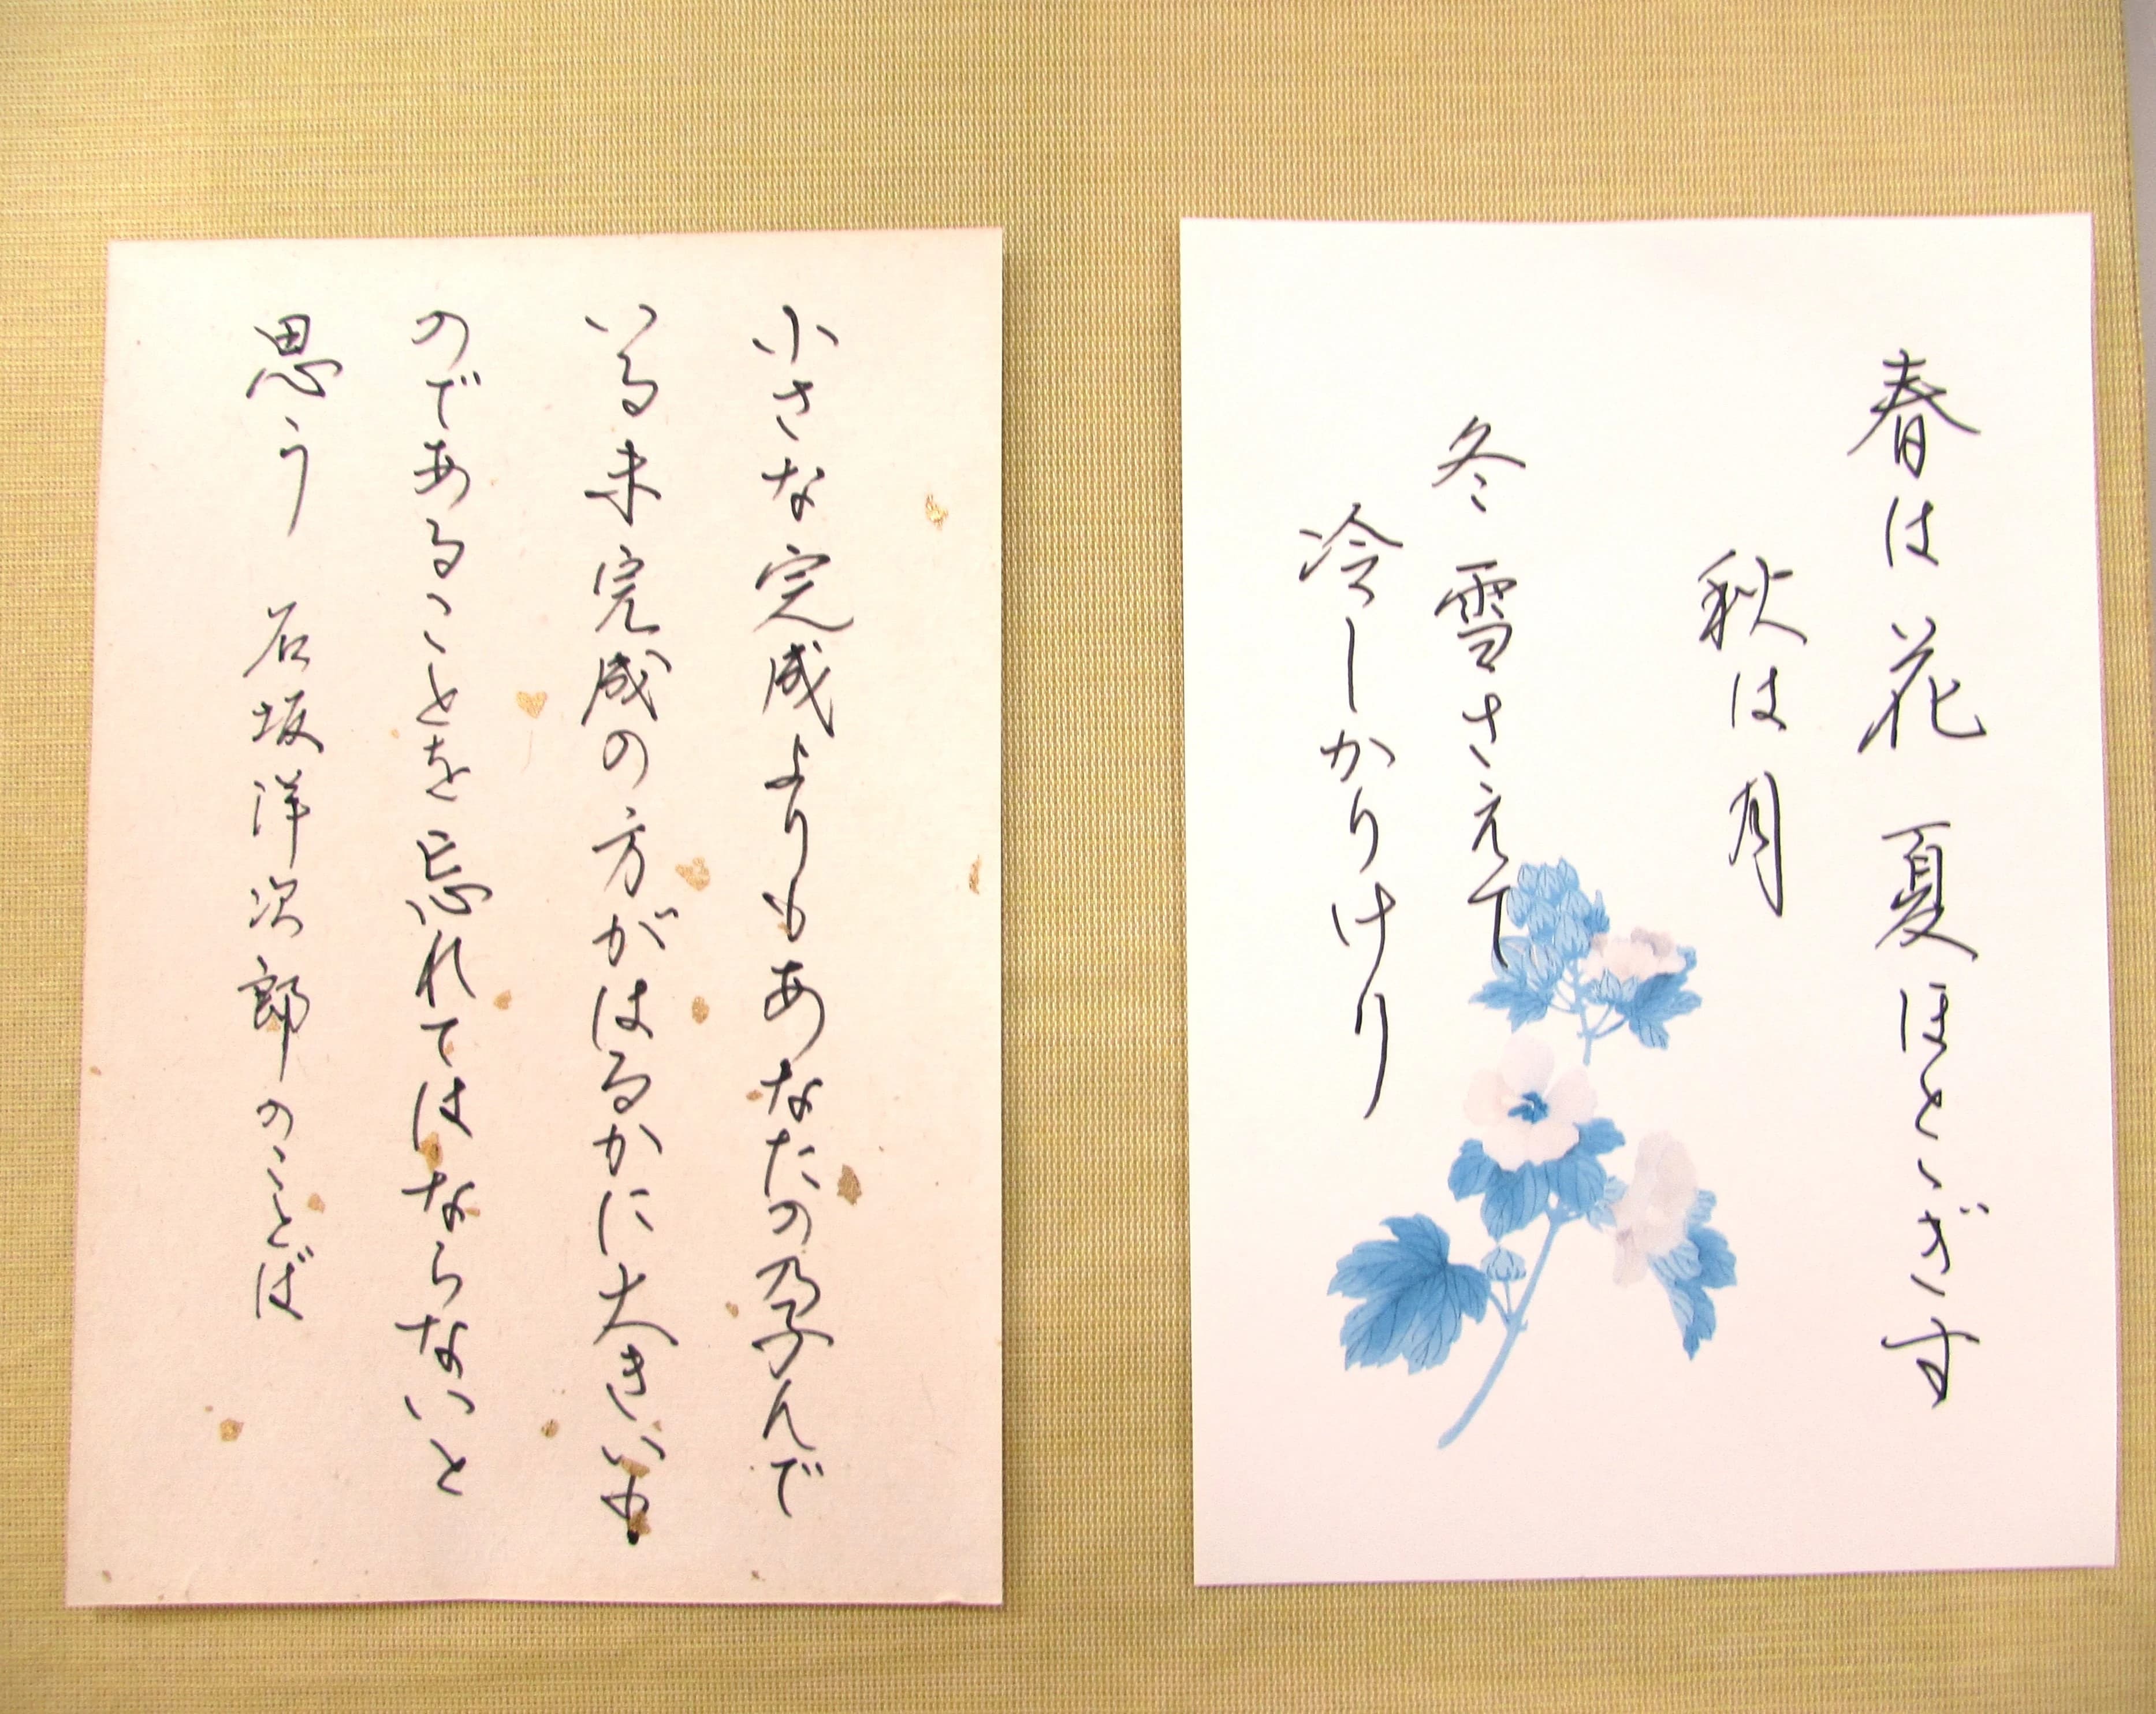 春は花 夏ほとゝぎす
秋は月
冬雪さえて
冷しかりけり
小さな完成よりもあなたの孕んで
いる未完成の方がはるかに大きいも
のであることを忘れてはならないと
思う 石坂洋次郎のことば